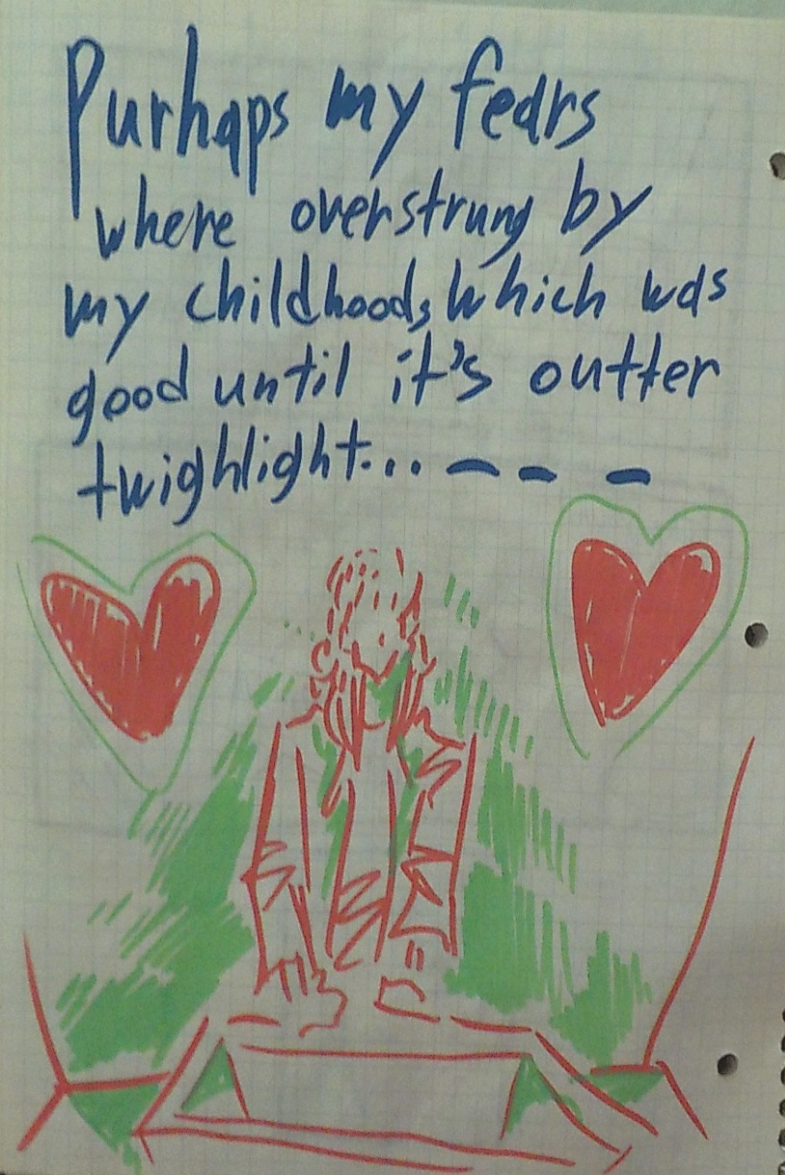 Purhaps my fears
where overstrung by
my childhood, which was
good until it's outter
twighlight... — — —